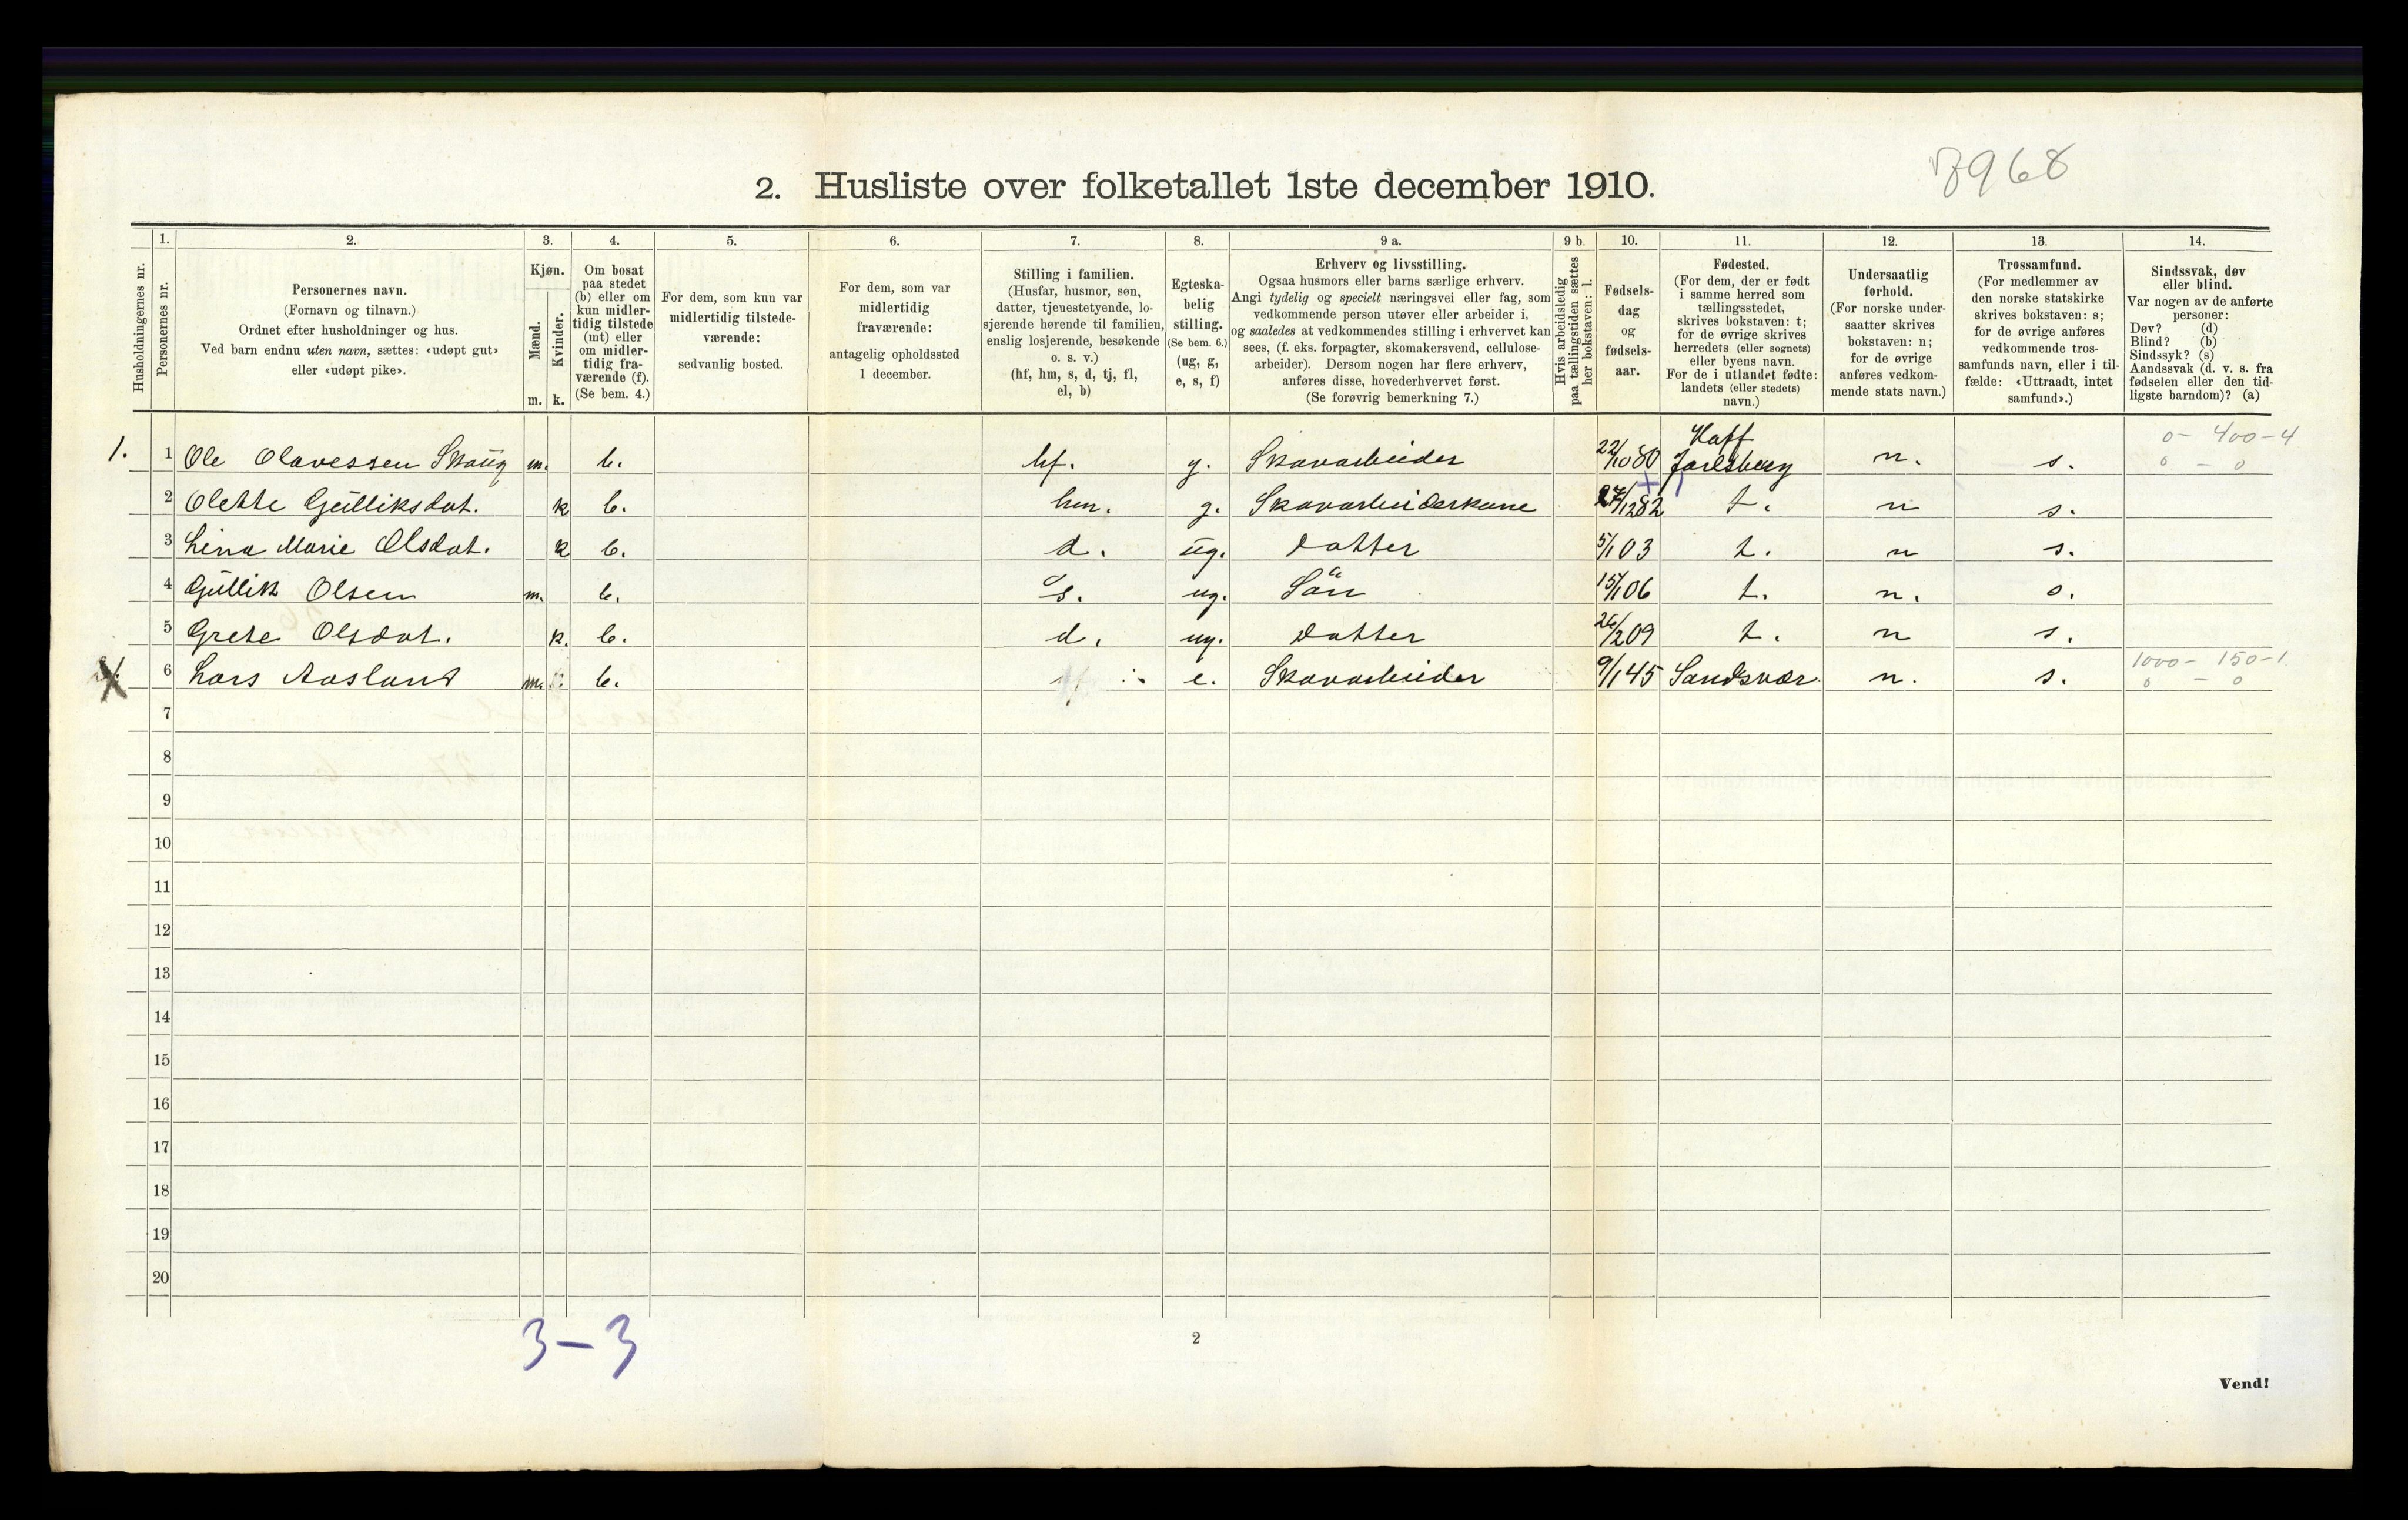 7968
2. Husliste over folketallet 1ste december 1910.
Husholdningernes nr.
1.
Personernes nr.
2.
Personernes navn.
(Fornavn og tilnavn.)
Ordnet efter husholdninger og hus.
Ved barn endnu uten navn, sættes: «udøpt gut»
eller «udøpt pike».
3.
Kjøn.
Mænd.
Kvinder.
m. k.
4.
Om bosat
paa stedet
(b) eller om
kun midler-
tidig tilstede
(mt) eller
om midler-
tidig fra-
værende (f).
(Se bem. 4.)
5.
For dem, som kun var
midlertidig tilstede-
værende:
sedvanlig bosted.
6.
For dem, som var
midlertidig
fraværende:
antagelig opholdssted
1 december.
7.
Stilling i familien.
(Husfar, husmor, søn,
datter, tjenestetyende, lo-
sjerende hørende til familien,
enslig losjerende, besøkende
o. s. v.)
(hf, hm, s, d, tj, fl,
el, b)
8.
Egteska-
belig
stilling.
(Se bem. 6.)
(ug, g,
e, s, f)
9 a.
Erhverv og livsstilling.
Ogsaa husmors eller barns særlige erhverv.
Angi tydelig og specielt næringsvei eller fag, som
vedkommende person utøver eller arbeider i,
og saaledes at vedkommendes stilling i erhvervet kan
sees, (f. eks. forpagter, skomakersvend, cellulose-
arbeider). Dersom nogen har flere erhverv,
anføres disse, hovederhvervet først.
(Se forøvrig bemerkning 7.)
9 b.
Hvis arbeidsledig
paa tællingstiden sættes
her bokstaven: l.
10.
Fødsels-
dag
og
fødsels-
aar.
11.
Fødested.
(For dem, der er født
i samme herred som
tællingsstedet,
skrives bokstaven: t;
for de øvrige skrives
herredets (eller sognets)
eller byens navn.
For de i utlandet fødte:
landets (eller stedets)
navn.)
12.
Undersaatlig
forhold.
(For norske under-
saatter skrives
bokstaven: n;
for de øvrige
anføres vedkom-
mende stats navn.)
13.
Trossamfund.
(For medlemmer av
den norske statskirke
skrives bokstaven: s;
for de øvrige anføres
vedkommende tros-
samfunds navn, eller i til-
fælde: «Uttraadt, intet
samfund».)
14.
Sindssvak, døv
eller blind.
Var nogen av de anførte
personer:
Døv? (d)
Blind? (b)
Sindssyk? (s)
Aandssvak (d. v. s. fra
fødselen eller den tid-
ligste barndom)? (a)
1. 1 Ole Olavessen Skaug m. b. hf. g. Skovarbeider 22/10 80 Hoff Jarlsberg n. s. 0 - 400 - 4
0 - 0
2 Olette Gulliksdat. k b. hm. g. Skovarbeiderkone 27/12 82 t. n s.
3 Lina Marie Olsdat. k b. d. ug. Datter 5/1 03 t. n s.
4 Gullik Olsen m. b. s. ug. Sön 15/1 06 t. n. s.
5 Grete Olsdat. k. b. d. ug. Datter 26/2 09 t. n s.
6 Lars Aasland m. b. e. Skovarbeider 9/1 45 Sandsvær. n. s. 1000 - 150 - 1
0 - 0
7
8
9
10
11
12
13
14
15
16
17
18
19
20
3 - 3
2
Vend!